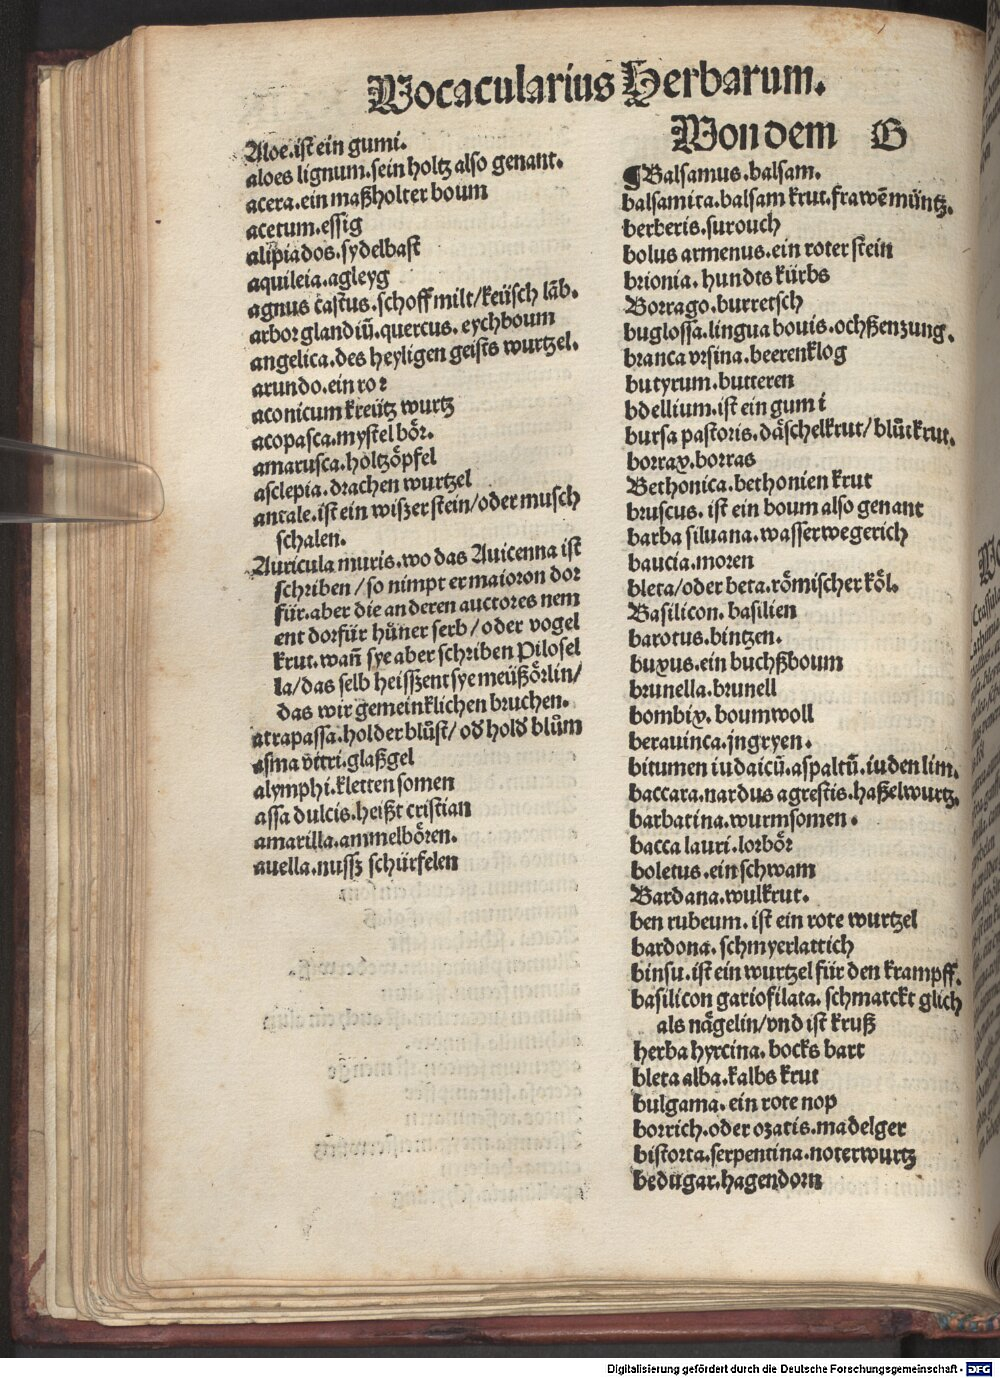 Vocacularius Herbarum.
Aloe.ist ein gumi.
aloes lignum.sein holtz also genant.
acera.ein maßholter boum
acetum.essig
alipiados.sydelbast
aquileia.agleyg
agnus castus.schoff milt/keüsch lãb.
arbor glandiũ.quercus. eychboum
angelica.des heyligen geists wurtzel.
arundo.ein ror
aconicum kreütz wurtz
acopasca.mystel bör.
amarusca.holtzöpfel
asclepia.drachen wurtzel
antale.ist ein wisser stein/oder musch
schalen.
Auricula muris.wo das Auicenna ist
schriben/so nimpt er maioron dor
für.aber die anderen auctores nem
ent dorfür hüner serb/oder vogel
krut.wañ sye aber schriben Pilosel
la/das selb heisszent sye meüßörlin/
das wir gemeinklichen bruchen.
atrapassa.holder blůst/od hold blům
asma vitri.glaßgel
alymphi.kletten somen
assa dulcis.heißt cristian
amarilla.ammelbören.
auella.nussz schürfelen
Von dem B
¶Balsamus.balsam.
balsamita.balsam krut.frawẽ müntz.
berberis.surouch
bolus armenus.ein roter stein
brionia.hundts kürbs
Borrago.burretsch
buglossa.lingua bouis.ochßenzung.
branca vrsina.beerenklog
butyrum.butteren
bdellium.ist ein gumi
bursa pastoris.däschelkrut/blůtkrut.
borrax.borras
Bethonica.bethonien krut
bruscus. ist ein boum also genant
barba siluana.wasserwegerich
baucia.moren
bleta/oder beta.römischer köl.
Basilicon. basilien
barotus.bintzen.
buxus.ein buchßboum
brunella.brunell
bombix.boumwoll
berauinca.jngryen.
bitumen iudaicũ.aspaltũ.iuden lim.
baccara.nardus agrestis.haßelwurtz.
barbatina.wurmsomen.
bacca lauri.lorbör
boletus.ein schwam
Bardana.wulkrut.
ben rubeum. ist ein rote wurtzel
bardona. schmyerlattich
binsu.ist ein wurtzel für den krampff.
basilicon gariofilata. schmatckt glich
als nägelin/vnd ist kruß
herba hyrcina. bocks bart
bleta alba.kalbs krut
bulgama. ein rote nop
borrich.oder ozatis.madelger
bistorta.serpentina.noterwurtz
bedugar.hagendorn
Digitalisierung gefördert durch die Deutsche Forschungsgemeinschaft - DFG